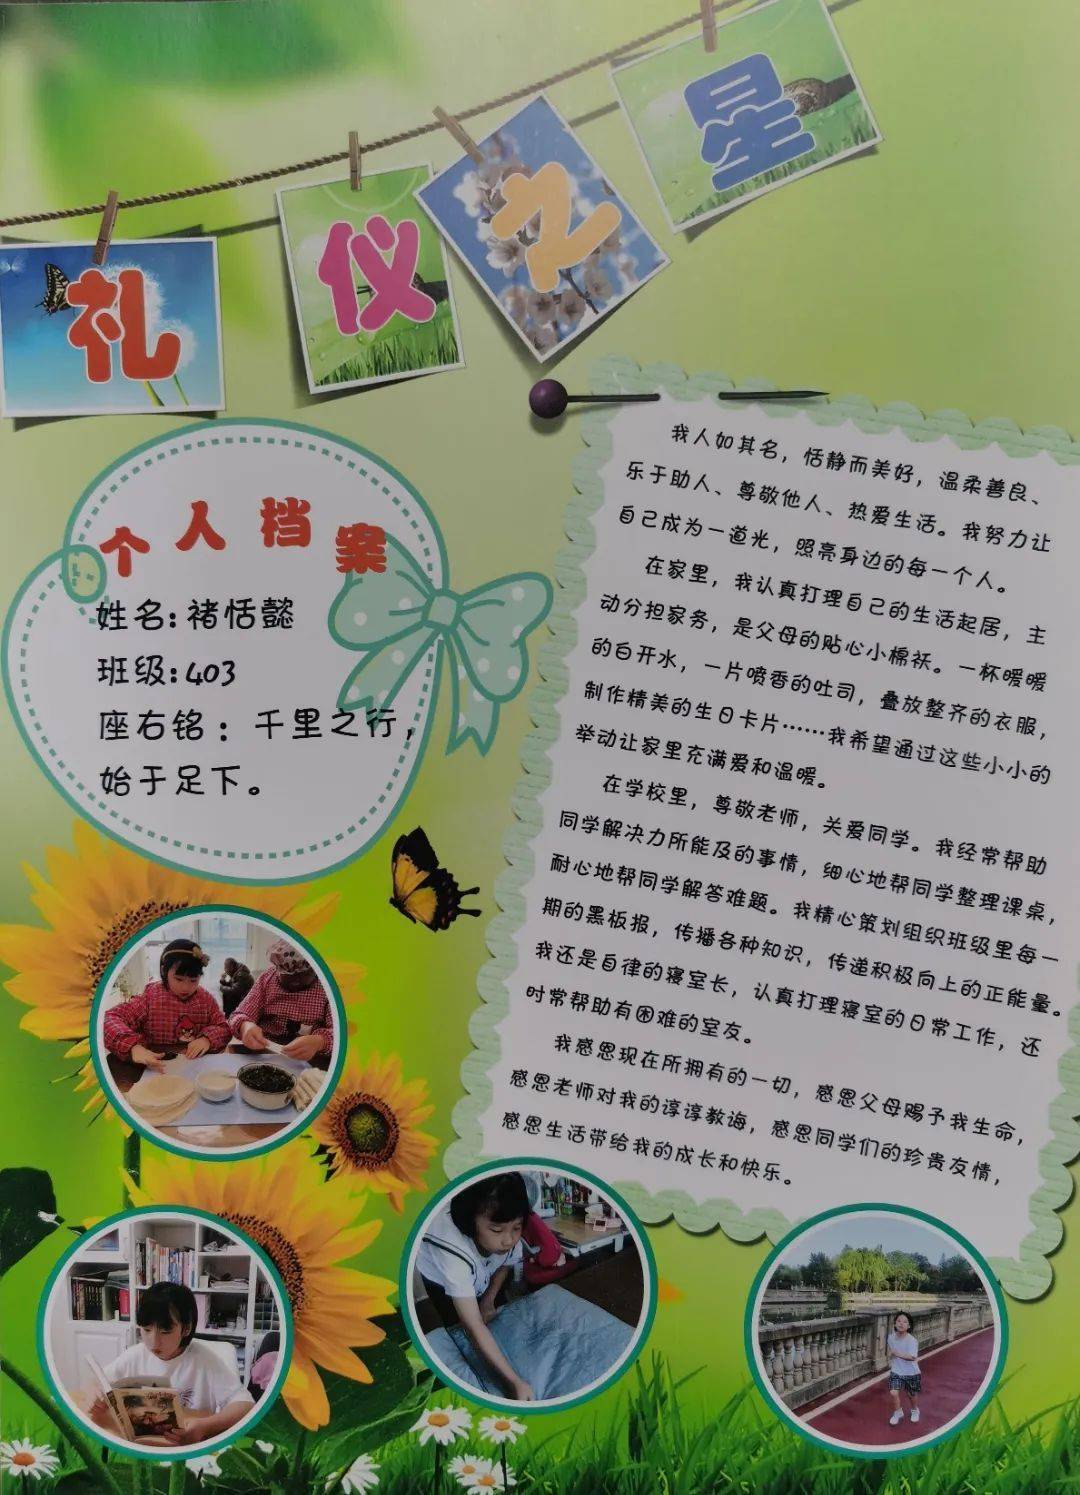 礼仪之星
个人档案
姓名:褚恬懿
班级:403
座右铭：千里之行，
始于足下。
我人如其名，恬静而美好，温柔善良、
乐于助人、尊敬他人、热爱生活。我努力让
自己成为一道光，照亮身边的每一个人。
在家里，我认真打理自己的生活起居，主
动分担家务，是父母的贴心小棉袄。一杯暖暖
的白开水，一片喷香的吐司，叠放整齐的衣服，
制作精美的生日卡片……我希望通过这些小小的
举动让家里充满爱和温暖。
在学校里，尊敬老师，关爱同学。我经常帮助
同学解决力所能及的事情，细心地帮同学整理课桌，
耐心地帮同学解答难题。我精心策划组织班级里每一
期的黑板报，传播各种知识，传递积极向上的正能量。
我还是自律的寝室长，认真打理寝室的日常工作，还
时常帮助有困难的室友。
我感恩现在所拥有的一切，感恩父母赐予我生命，
感恩老师对我的谆谆教诲，感恩同学们的珍贵友情，
感恩生活带给我的成长和快乐。